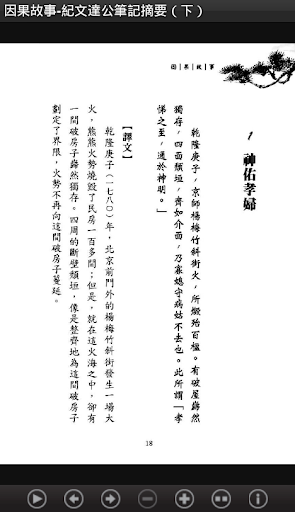 因果故事-紀文達公筆記摘要（下）
因│果│故│事
1 神佑孝婦
乾隆庚子，京師楊梅竹斜街火，所燬殆百楹。有破屋巋然
獨存，四面頹垣，齊如介面，乃寡媳守病姑不去也。此所謂「孝
悌之至，通於神明。」
【譯文】
乾隆庚子（一七八○）年，北京前門外的楊梅竹斜街發生一場大
火，熊熊火勢燒毀了民房一百多間；但是，就在這火海之中，卻有
一間破房子巋然獨存。四周的斷壁頹垣，像是整齊地為這間破房子
劃定了界限，火勢不再向這間破房子蔓延。
18